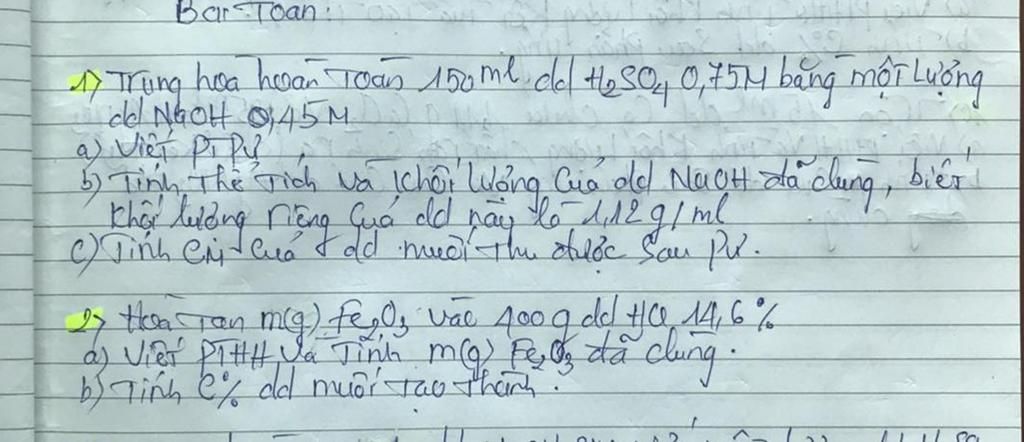 Bài Toán:
1) Trung hòa hoàn toàn 150ml dd H₂SO₄ 0,75M bằng một lượng
dd NaOH 0,45M
a) Viết PTPƯ
b) Tính thể tích và khối lượng của dd NaOH đã dùng, biết
khối lượng riêng của dd này là 1,12g/ml
c) Tính CM của dd muối thu được sau pư.
2) Hòa tan m(g) Fe₂O₃ vào 400g dd HCl 14,6%
a) Viết PTHH và tính m(g) Fe₂O₃ đã dùng.
b) Tính C% dd muối tạo thành.